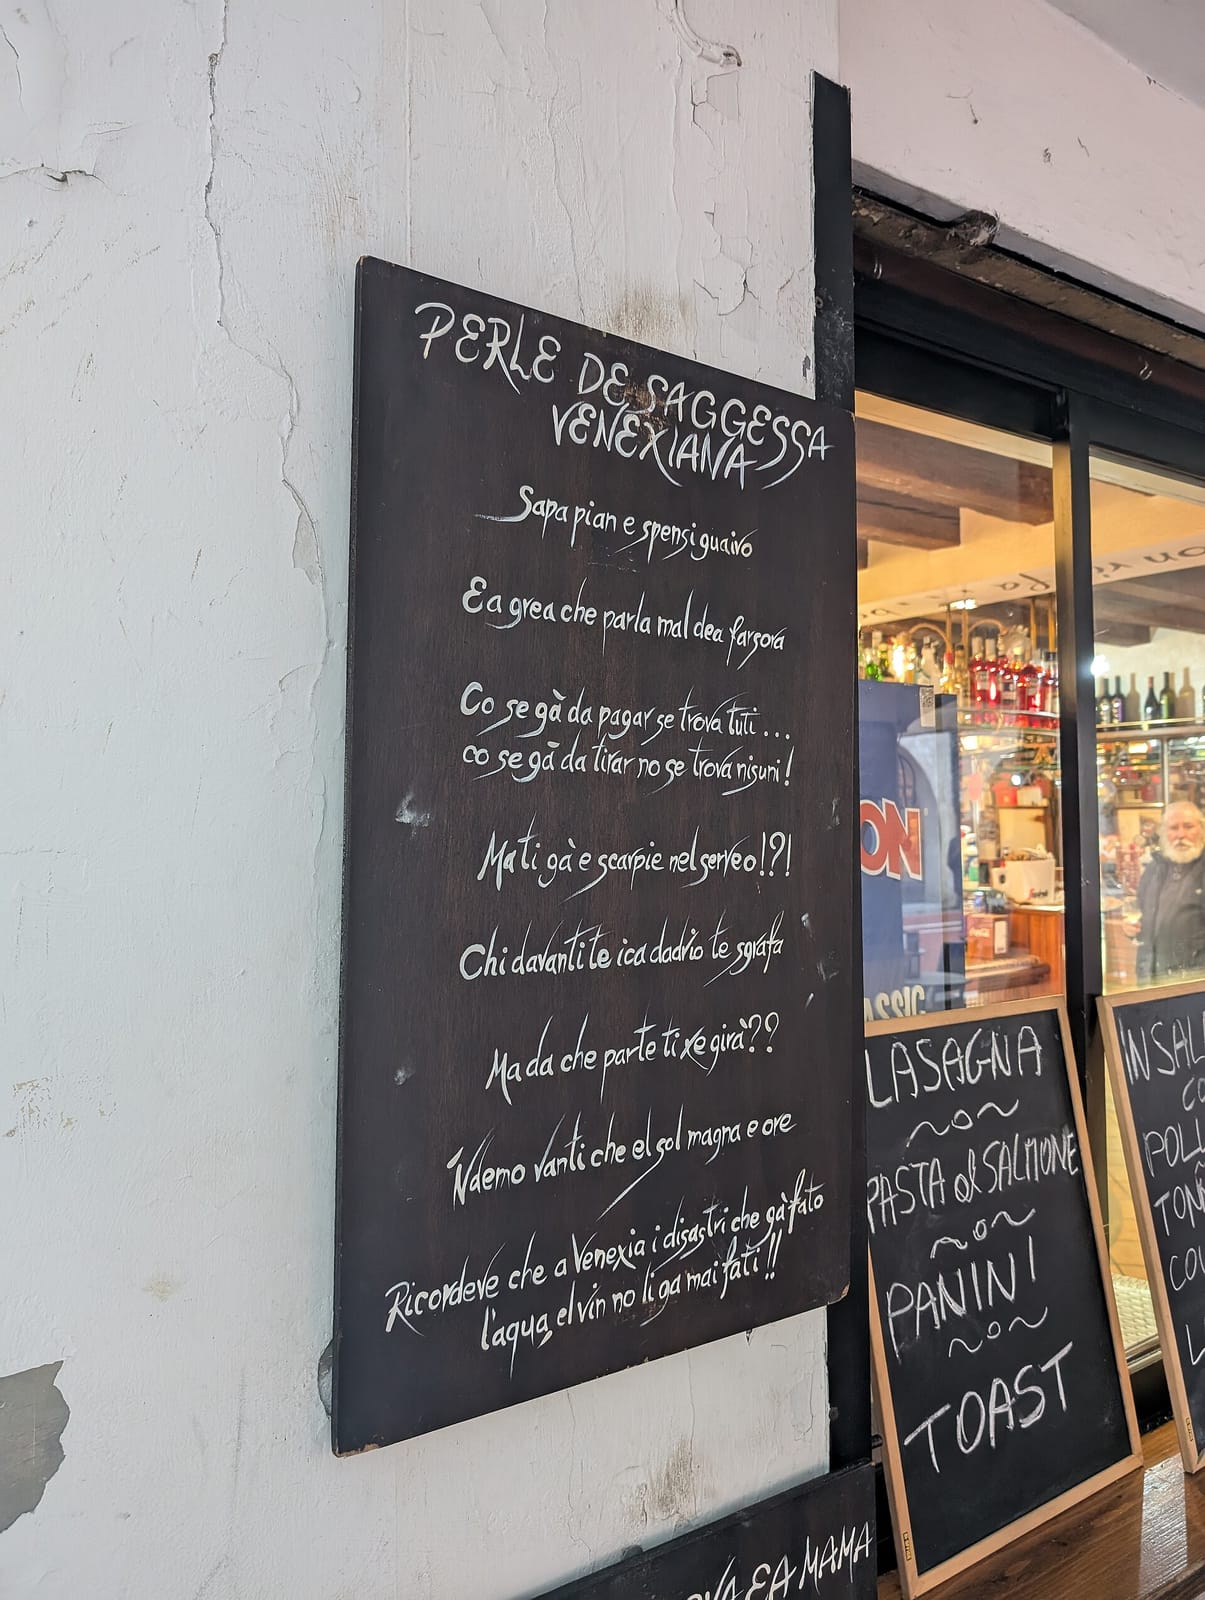 PERLE DE SAGGESSA
VENEXIANA
Sapa pian e spensi guaivo
E a grea che parla mal dea farsora
Co se gà da pagar se trova tuti...
co se gà da tirar no se trova nisuni!
Ma ti gà e scarpie nel serveo!?!
Chi davanti te ica dadrio te sgrafa
Ma da che parte ti xe girà??
Ndemo vanti che el sol magna e ore
Ricordeve che a Venexia i disastri che gà fato
l'aqua, el vin no li ga mai fati!!
EA MAMA
ON
ASSIC
LASAGNA
PASTA al SALMONE
PANINI
TOAST
INSAL
CO
POLL
TON